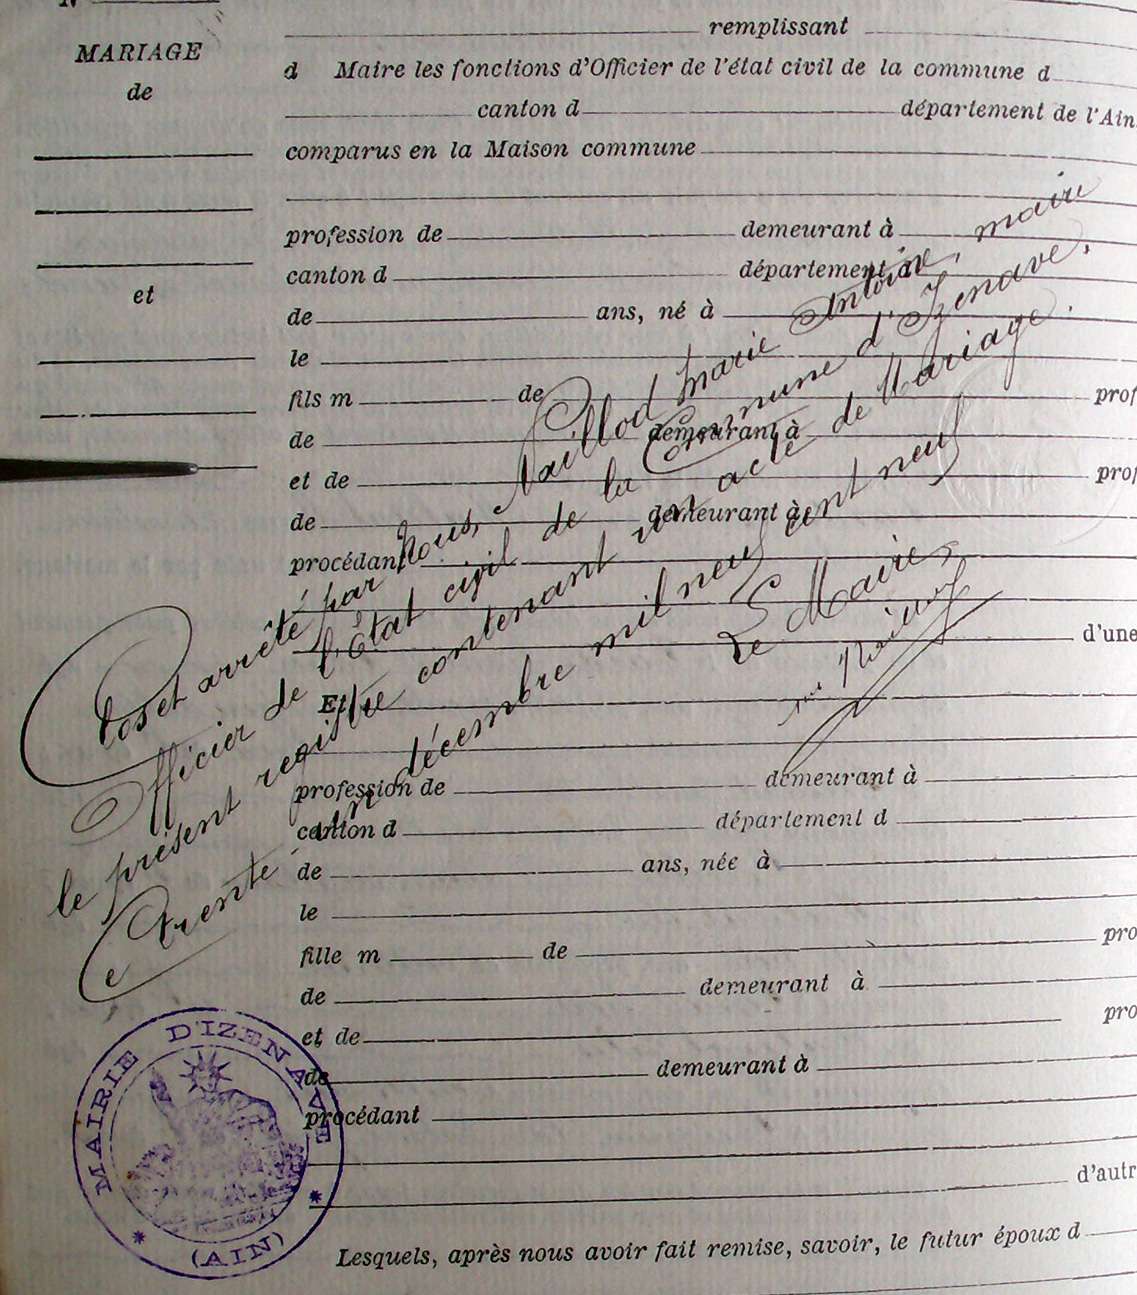 N
MARIAGE
de
et
remplissant
d Maire les fonctions d'Officier de l'état civil de la commune d
canton d département de l'Ain
comparus en la Maison commune
profession de demeurant à
canton d département d
de ans, né à
le
fils m de prof
de demeurant à
et de prof
de demeurant à
procédant
d'une
Et
profession de demeurant à
canton d département d
de ans, née à
le
fille m de pro
de demeurant à
et de pro
de demeurant à
procédant
d'autr
Lesquels, après nous avoir fait remise, savoir, le futur époux d
Clos et arrêté par nous, Naillod Marie Antoine, maire
Officier de l'État civil de la Commune d'Izenave,
le présent registre contenant un acte de Mariage.
Ce trente-un décembre mil neuf cent neuf
Le Maire,
MAIRIE D'IZENAVE
(AIN)